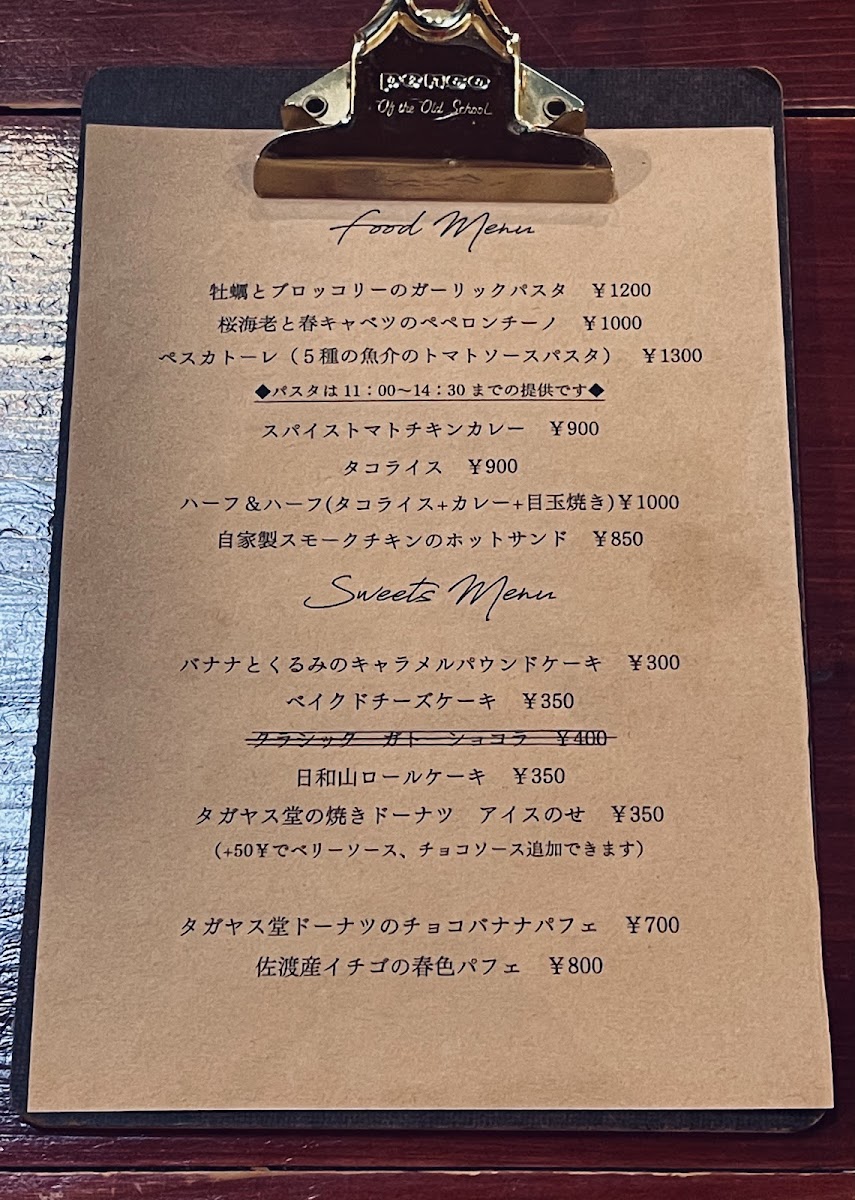 penco
Of the Old School
Food Menu
牡蠣とブロッコリーのガーリックパスタ　￥1200
桜海老と春キャベツのペペロンチーノ　￥1000
ペスカトーレ（５種の魚介のトマトソースパスタ）　￥1300
◆パスタは 11：00～14：30 までの提供です◆
スパイストマトチキンカレー　￥900
タコライス　￥900
ハーフ＆ハーフ(タコライス+カレー+目玉焼き)￥1000
自家製スモークチキンのホットサンド　￥850
Sweets Menu
バナナとくるみのキャラメルパウンドケーキ　￥300
ベイクドチーズケーキ　￥350
クラシック　ガトーショコラ　￥400
日和山ロールケーキ　￥350
タガヤス堂の焼きドーナツ　アイスのせ　￥350
（+50￥でベリーソース、チョコソース追加できます）
タガヤス堂ドーナツのチョコバナナパフェ　￥700
佐渡産イチゴの春色パフェ　￥800